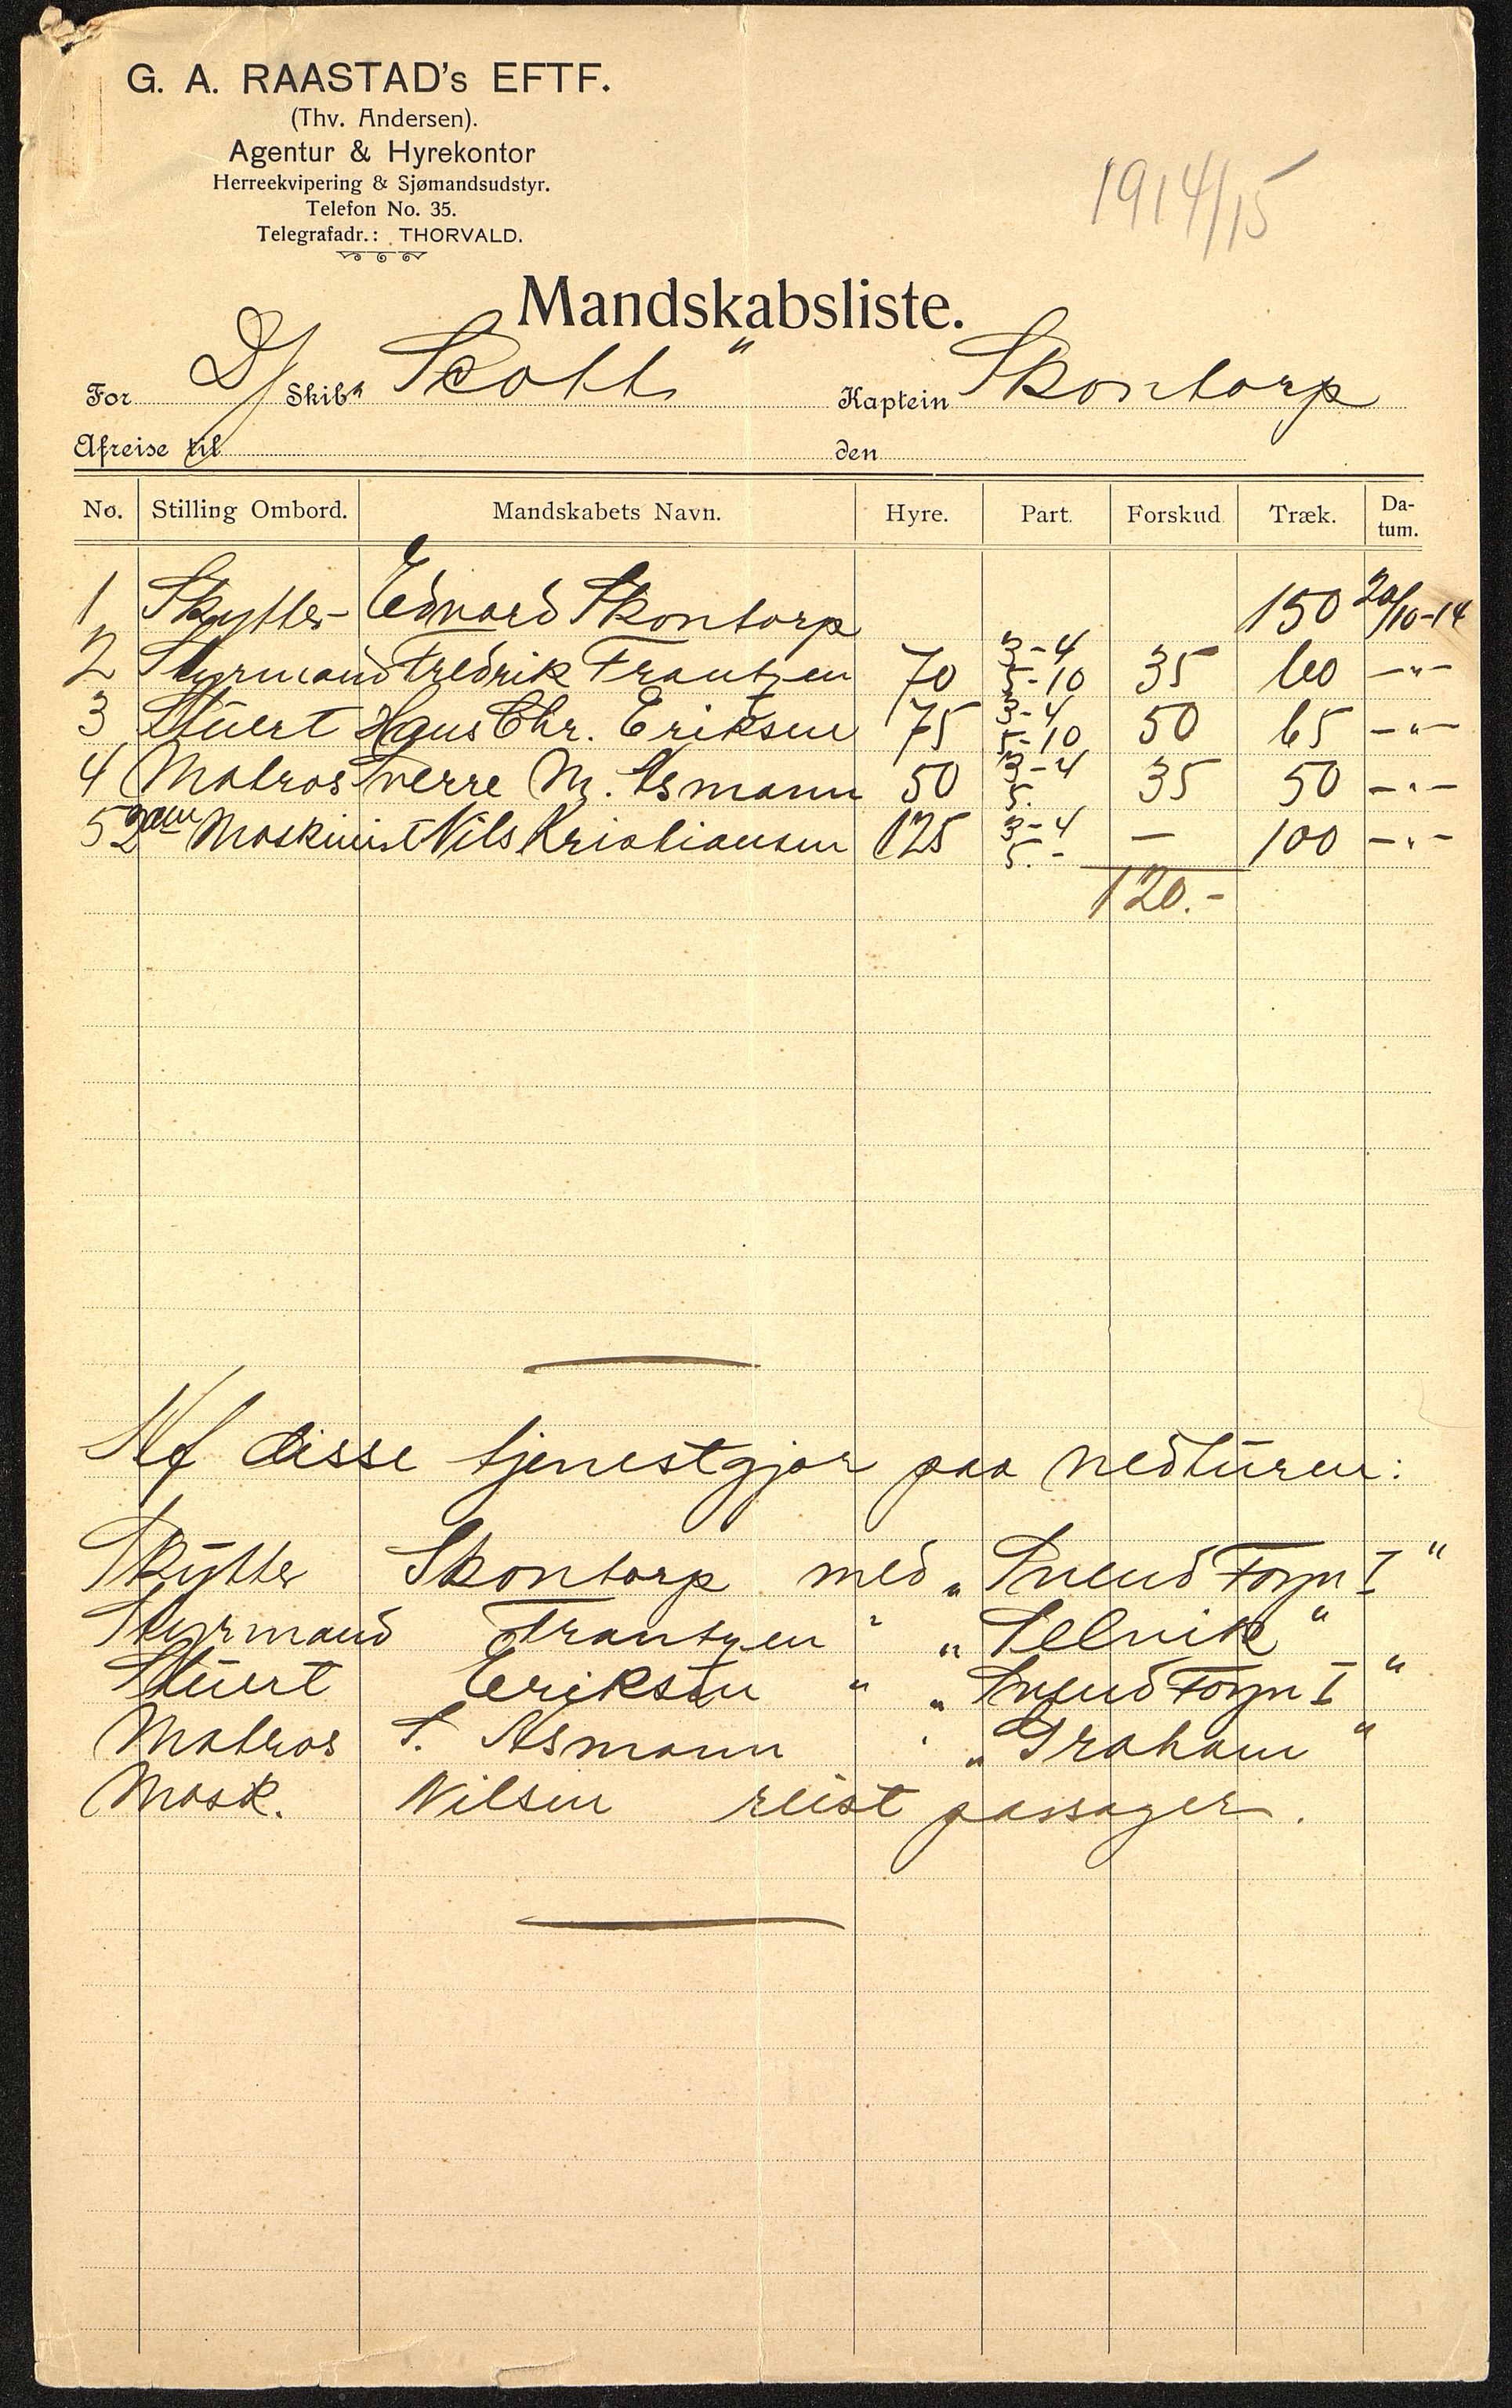 G. A. RAASTAD's EFTF.
(Thv. Andersen).
Agentur & Hyrekontor
Herreekvipering & Sjømandsudstyr.
Telefon No. 35.
Telegrafadr.: THORVALD.
1914/15
Mandskabsliste.
For D/ Skib " Scott " Kaptein Skontorp
Afreise til den
No. Stilling Ombord. Mandskabets Navn. Hyre. Part. Forskud Træk. Da-tum.
1 Skytter Edvard Skontorp 150 20/10-14
2 Styrmand Fredrik Frantzen 70 3-4 5-10 35 60 -"-
3 Stuert Hans Chr. Eriksen 75 3-4 5-10 50 65 -"-
4 Matros Sverre M. Asmann 50 3-4 5. 35 50 -"-
5 2den Maskinist Nils Kristiansen 125 3-4 5.- — 100 -"-
120.-
Af disse tjenestgjør paa nedturen:
Skytter Skontorp med "Svend Foyn I"
Styrmand Frantzen " "Selvik"
Stuert Eriksen " "Svend Foyn I"
Matros S. Asmann " "Graham"
Mask. Nilsen reist passager.